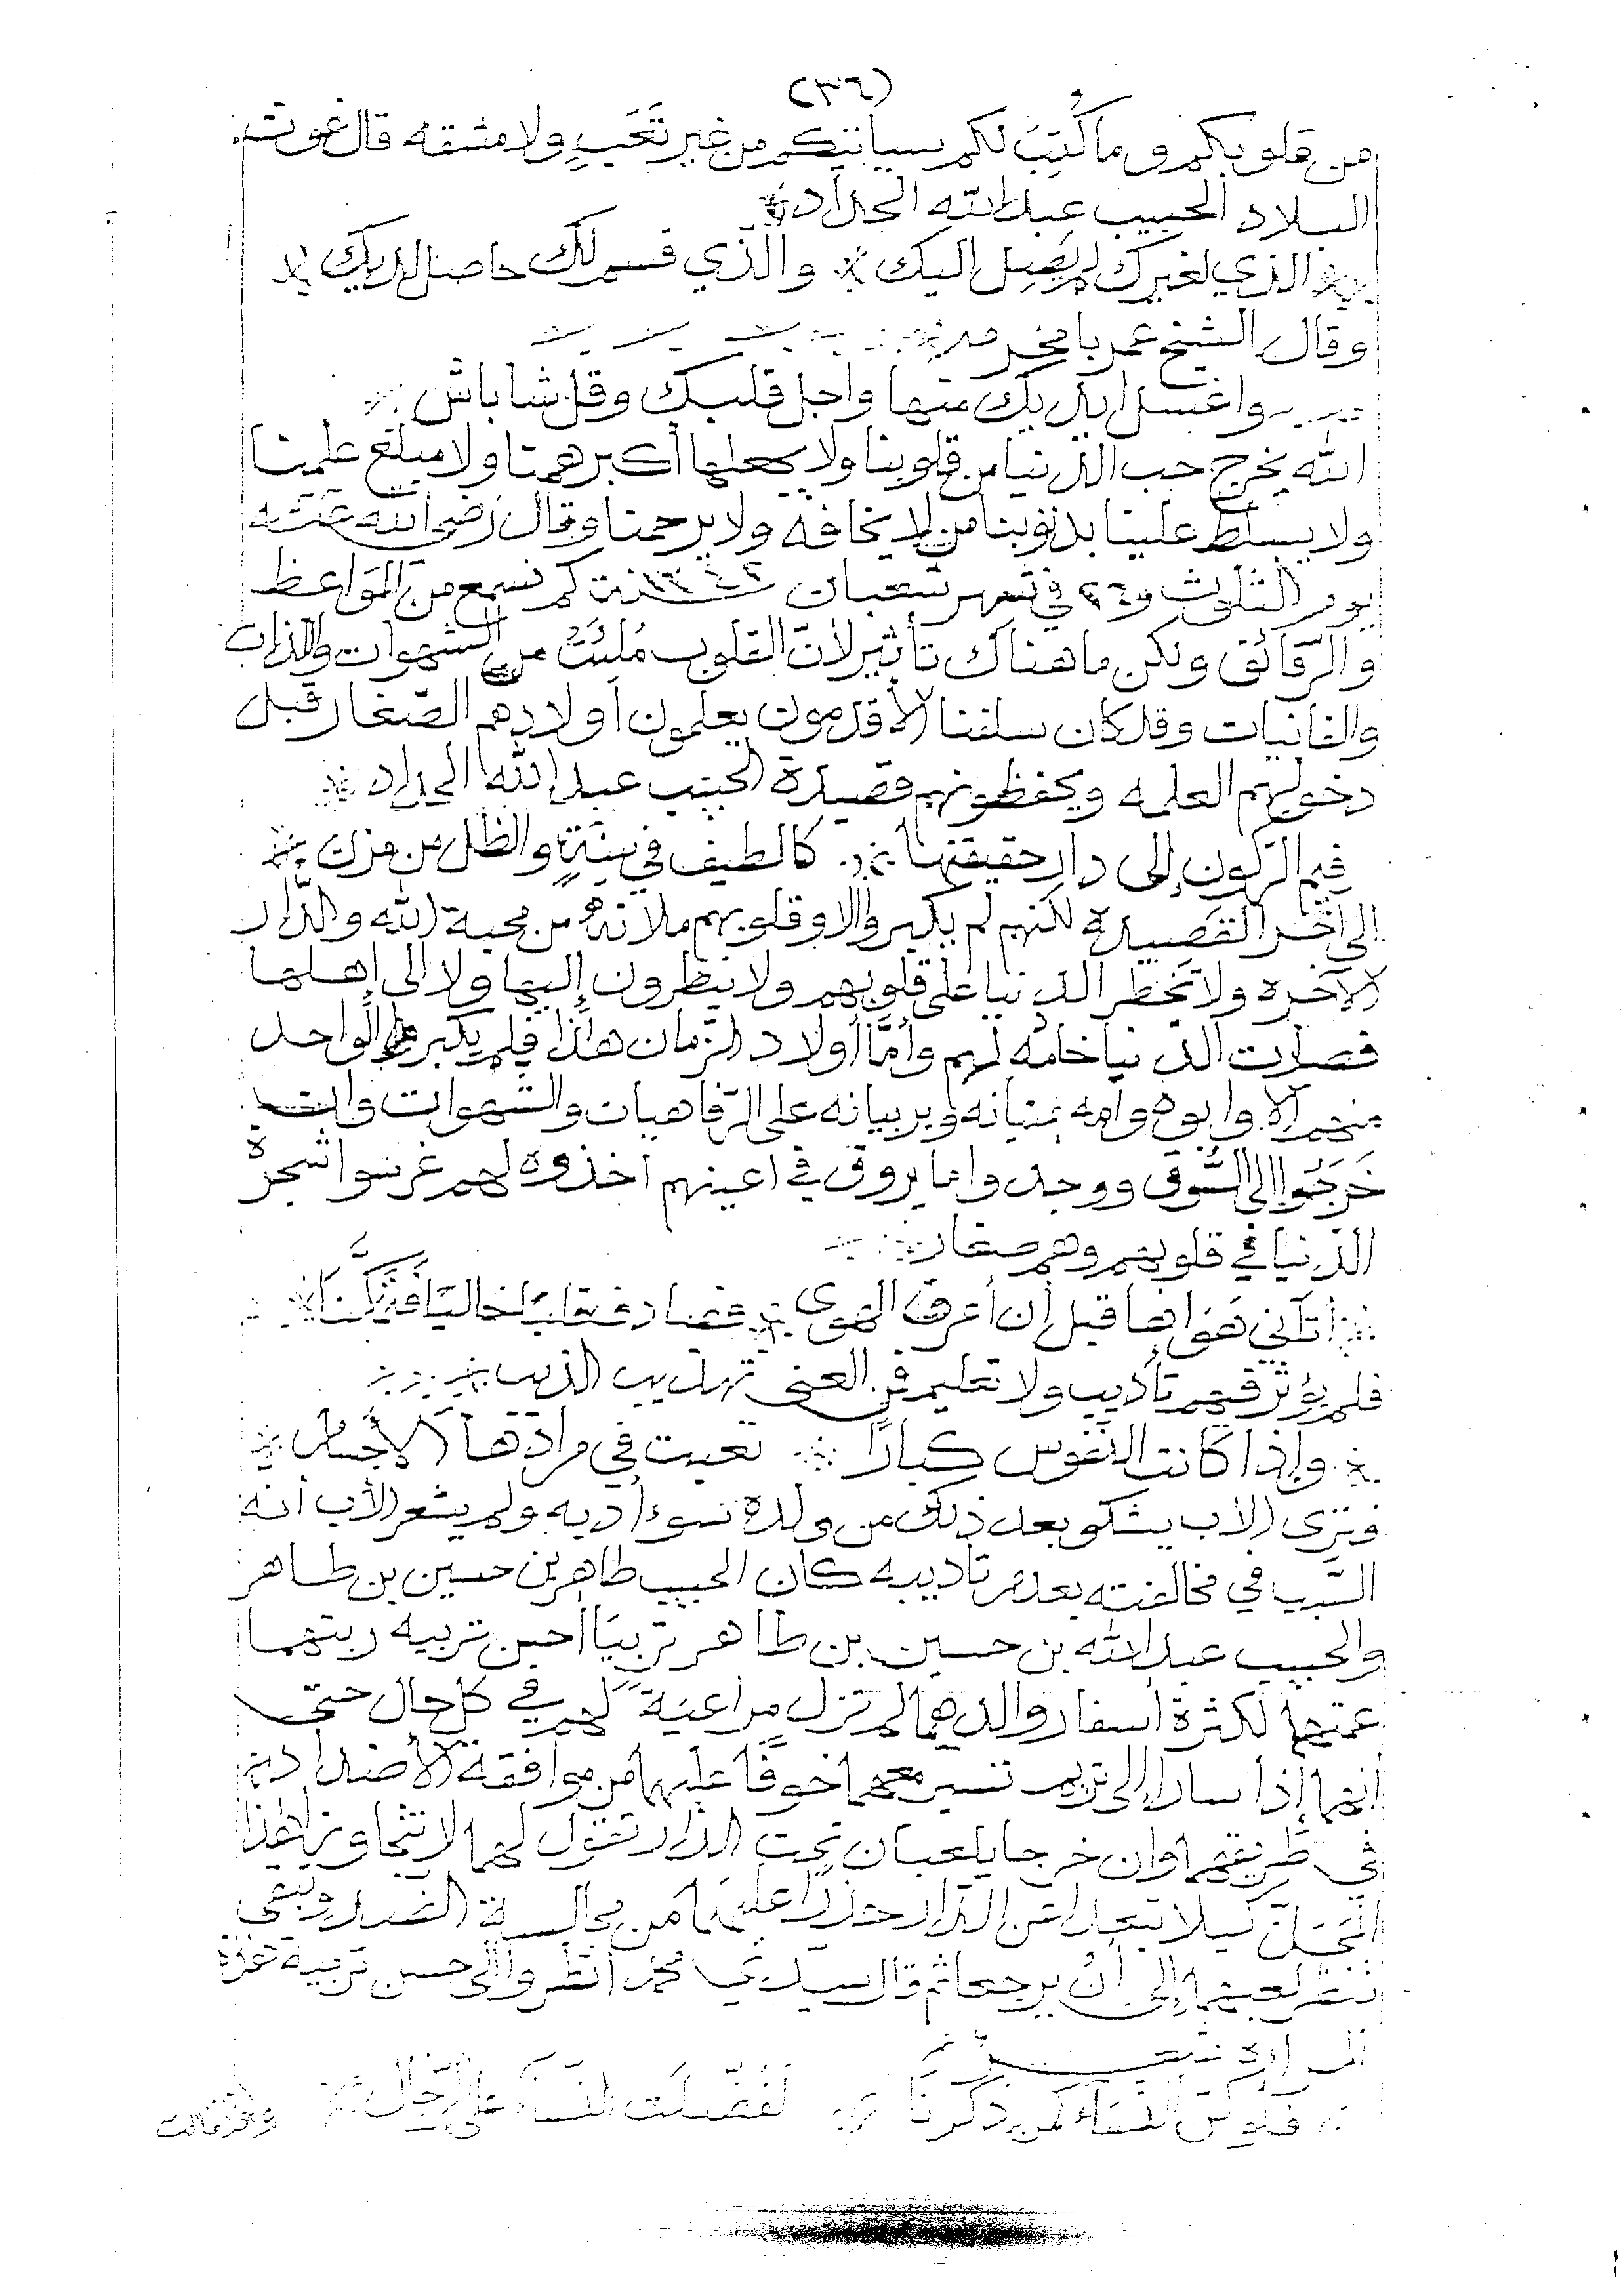 (٣٦)
من قلوبكم وما كُتِبَ لكم سيأتيكم من غير تَعَبٍ ولا مشقه قال غوث
البلاد الحبيب عبد الله الحداد
الذي لغيرك لم يَصِل اليك * والذي قسم لك حاصل لديك
وقال الشيخ عمر بامخرمه
واغسل ايديك منها واجل قلبك وقل شاباش
الله يخرج حب الدنيا من قلوبنا ولا يجعلها أكبر همنا ولا مبلغ علمنا
ولا يسلط علينا بذنوبنا من لا يخافه ولا يرحمنا وقال رضي الله عنه
يوم الثلوث في شهر شعبان سنة كم نسمع من المَوَاعظ
والرَّقائق ولكن ما هناك تأثير لأنّ القلوب مُلِئَت من الشهوات والذات
والفانيات وقد كان سلفنا الأقدمون يعلمون أولادهم الصّغار قبل
دخولهم العلمه ويحفظونهم قصيدة الحبيب عبد الله الحداد
فيم الركون إلى دار حقيقتها * كالطيف في سِنَةٍ والظل من مزن
إلى آخر القصيدة لكنهم لم يكبروا الا وقلوبهم ملانةٌ من محبة الله والدّار
الآخره ولا تَخطر الدنيا على قلوبهم ولا ينظرون إليها ولا الى إهلها
فصارت الدنيا خادمه لهم وأمَّا أولاد الزمان هاذا فلم يكبر الواحد
منهم الا وابوه وامه يمنيانه ويربيانه على الرّفاهيات والشهوات وان
خَرَجُوا إلى السُّوق ووجدوا ما يروق في اعينهم اخذوه لهم غرسوا شجرة
الدنيا في قلوبهم وهم صغار
أتاني هَوَاها قبل أن أعرف الهوى * فصادف قلبًا خاليًا فتَمَكَّنَا
فلم يؤثر فيهم تأديب ولا تعليم فن العنى تهذيب الذيب
وإذا كانت النفوس كبارًا * تعبت في مرادها الأجسام
وترى الأب يشكو بعد ذلك من ولده سوء أدبه ولم يشعر الأب أنه
السَّبب في مخالفته بعدم تأديبه كان الحبيب طاهر بن حسين بن طاهر
والحبيب عبد الله بن حسين بن طاهر تربيَا أحسن تربيه ربتهما
عمتهما لكثرة أسفار والدهما لم تزل مراعيةً لهم في كل حال حتى
انهما إذا سارا إلى تريم تسير معهما خوفًا عليهما من موافقة الأضداد
في طريقهما وان خرجا يلعبان تحت الدار تقول لهما لا تتجاوزا هذا
المَحَلّ كيلا تبعدا عن الدار حذرًا عليهما من مجالسة الضد وتبقى
تنظر لعبهما إلى أن يرجعا ثم قال سيدي محمد انظروا إلى حسن تربية هذه
فلو كنّ النساء كمن ذكرنا * لفُضّلت النساء على الرّجال